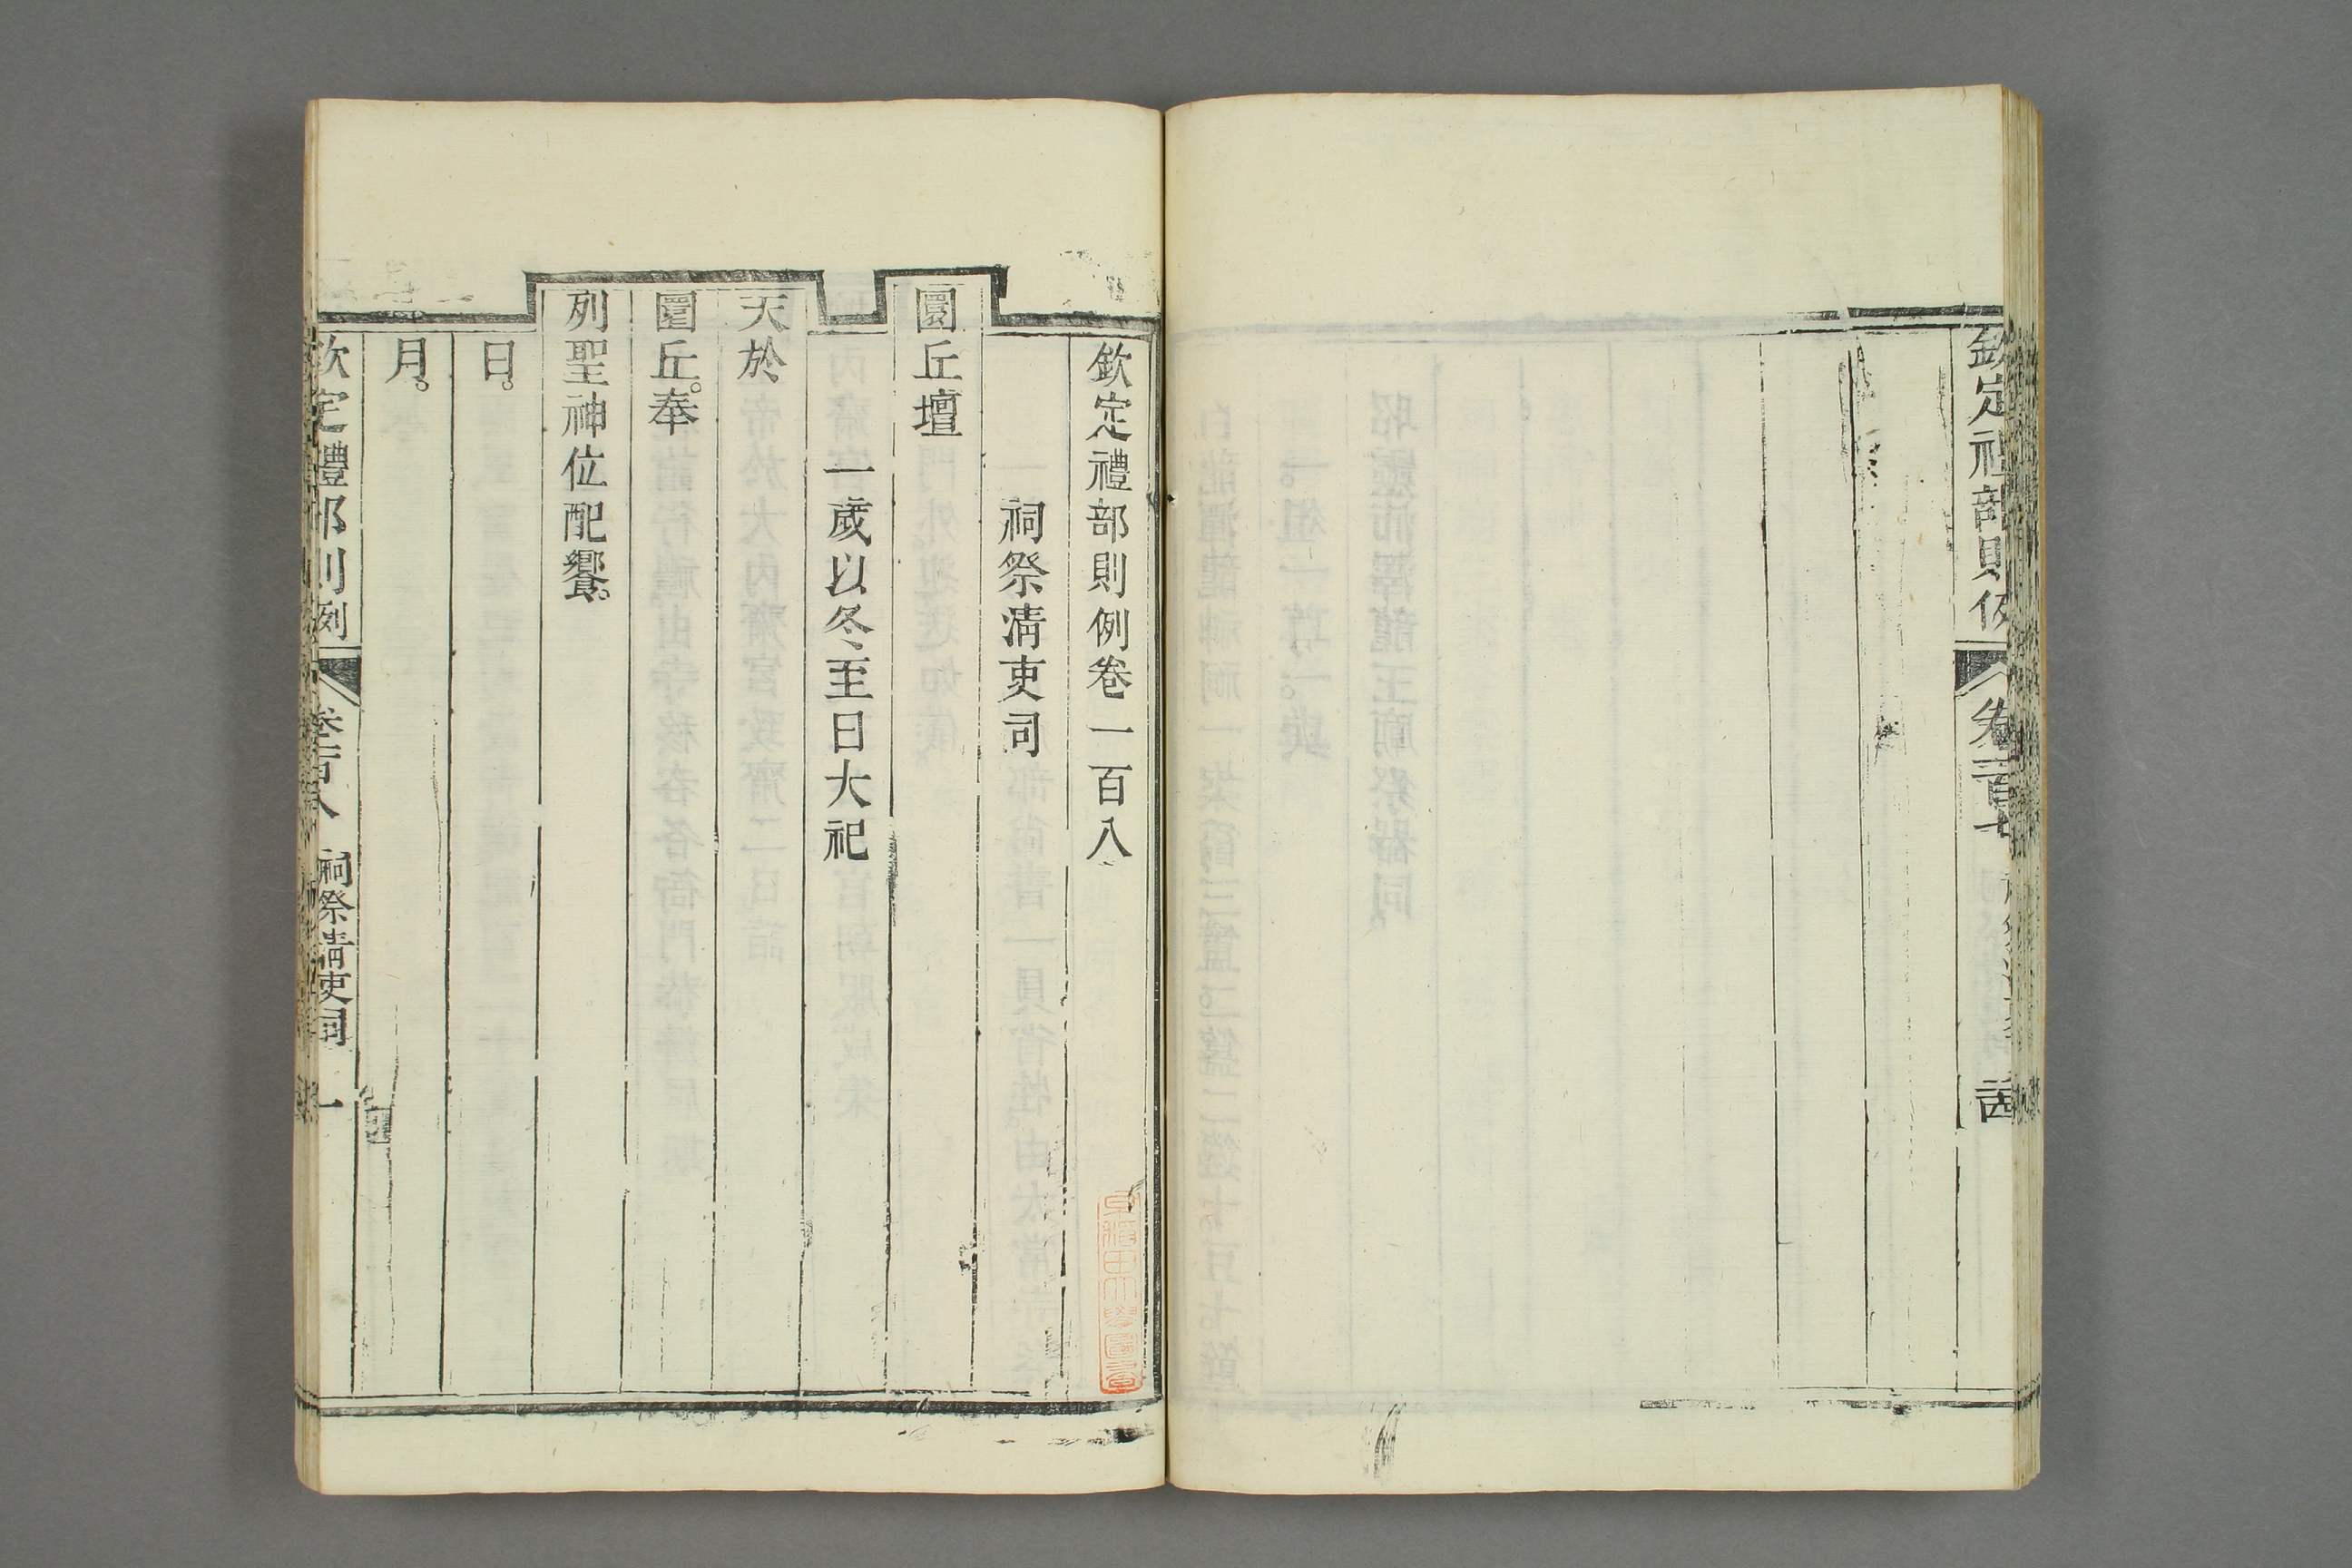 欽定禮部則例
欽定禮部則例卷一百八
祠祭清吏司
圜丘壇
一歲以冬至日大祀
天於
圜丘。奉
列聖神位配饗。
日。
月。
欽定禮部則例 卷一百八 祠祭清吏司 一